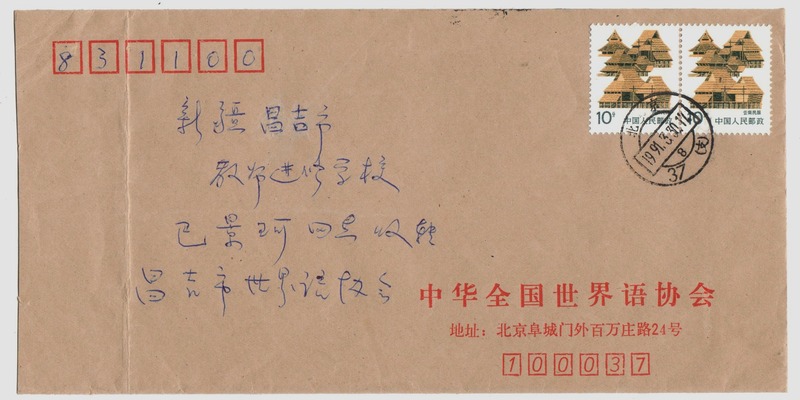 831100
新疆昌吉市
教师进修学校
巴景珂同志收转
昌吉市世界语协会
10分 中国人民邮政
云南民居
中国人民邮政
北京
1991.3.30.12
8
37(支)
中华全国世界语协会
地址：北京阜城门外百万庄路24号
100037